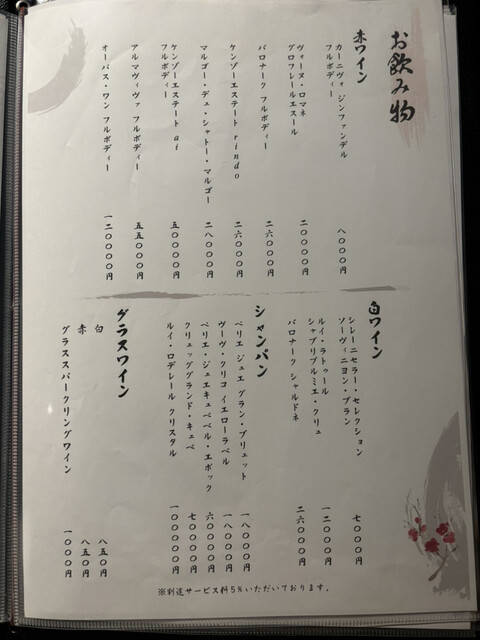 お飲み物
赤ワイン
カーニヴォ ジンファンデル
フルボディー
八〇〇〇円
ヴォーヌ・ロマネ
グロフレールエスール
二〇〇〇〇円
バロナーク フルボディー
二六〇〇〇円
ケンゾーエステート rindo
二六〇〇〇円
マルゴー・デュ・シャトー・マルゴー
二八〇〇〇円
ケンゾーエステート ai
フルボディー
五〇〇〇〇円
アルマヴィヴァ フルボディー
五五〇〇〇円
オーパス・ワン フルボディー
一二〇〇〇〇円
白ワイン
シレーニセラー・セレクション
ソーヴィニヨン・ブラン
七〇〇〇円
ルイ・ラトゥール
シャブリプルミエ・クリュ
一二〇〇〇円
バロナーク シャルドネ
二六〇〇〇円
シャンパン
ペリエ ジュエ グラン・ブリュット
一八〇〇〇円
ヴーヴ・クリコ イエローラベル
一八〇〇〇円
ペリエ・ジュエキュベベル・エポック
六〇〇〇〇円
クリュッググランド・キュベ
七〇〇〇〇円
ルイ・ロデレール クリスタル
一〇〇〇〇〇円
グラスワイン
白
八五〇円
赤
八五〇円
グラススパークリングワイン
一〇〇〇円
※別途サービス料5%いただいております。